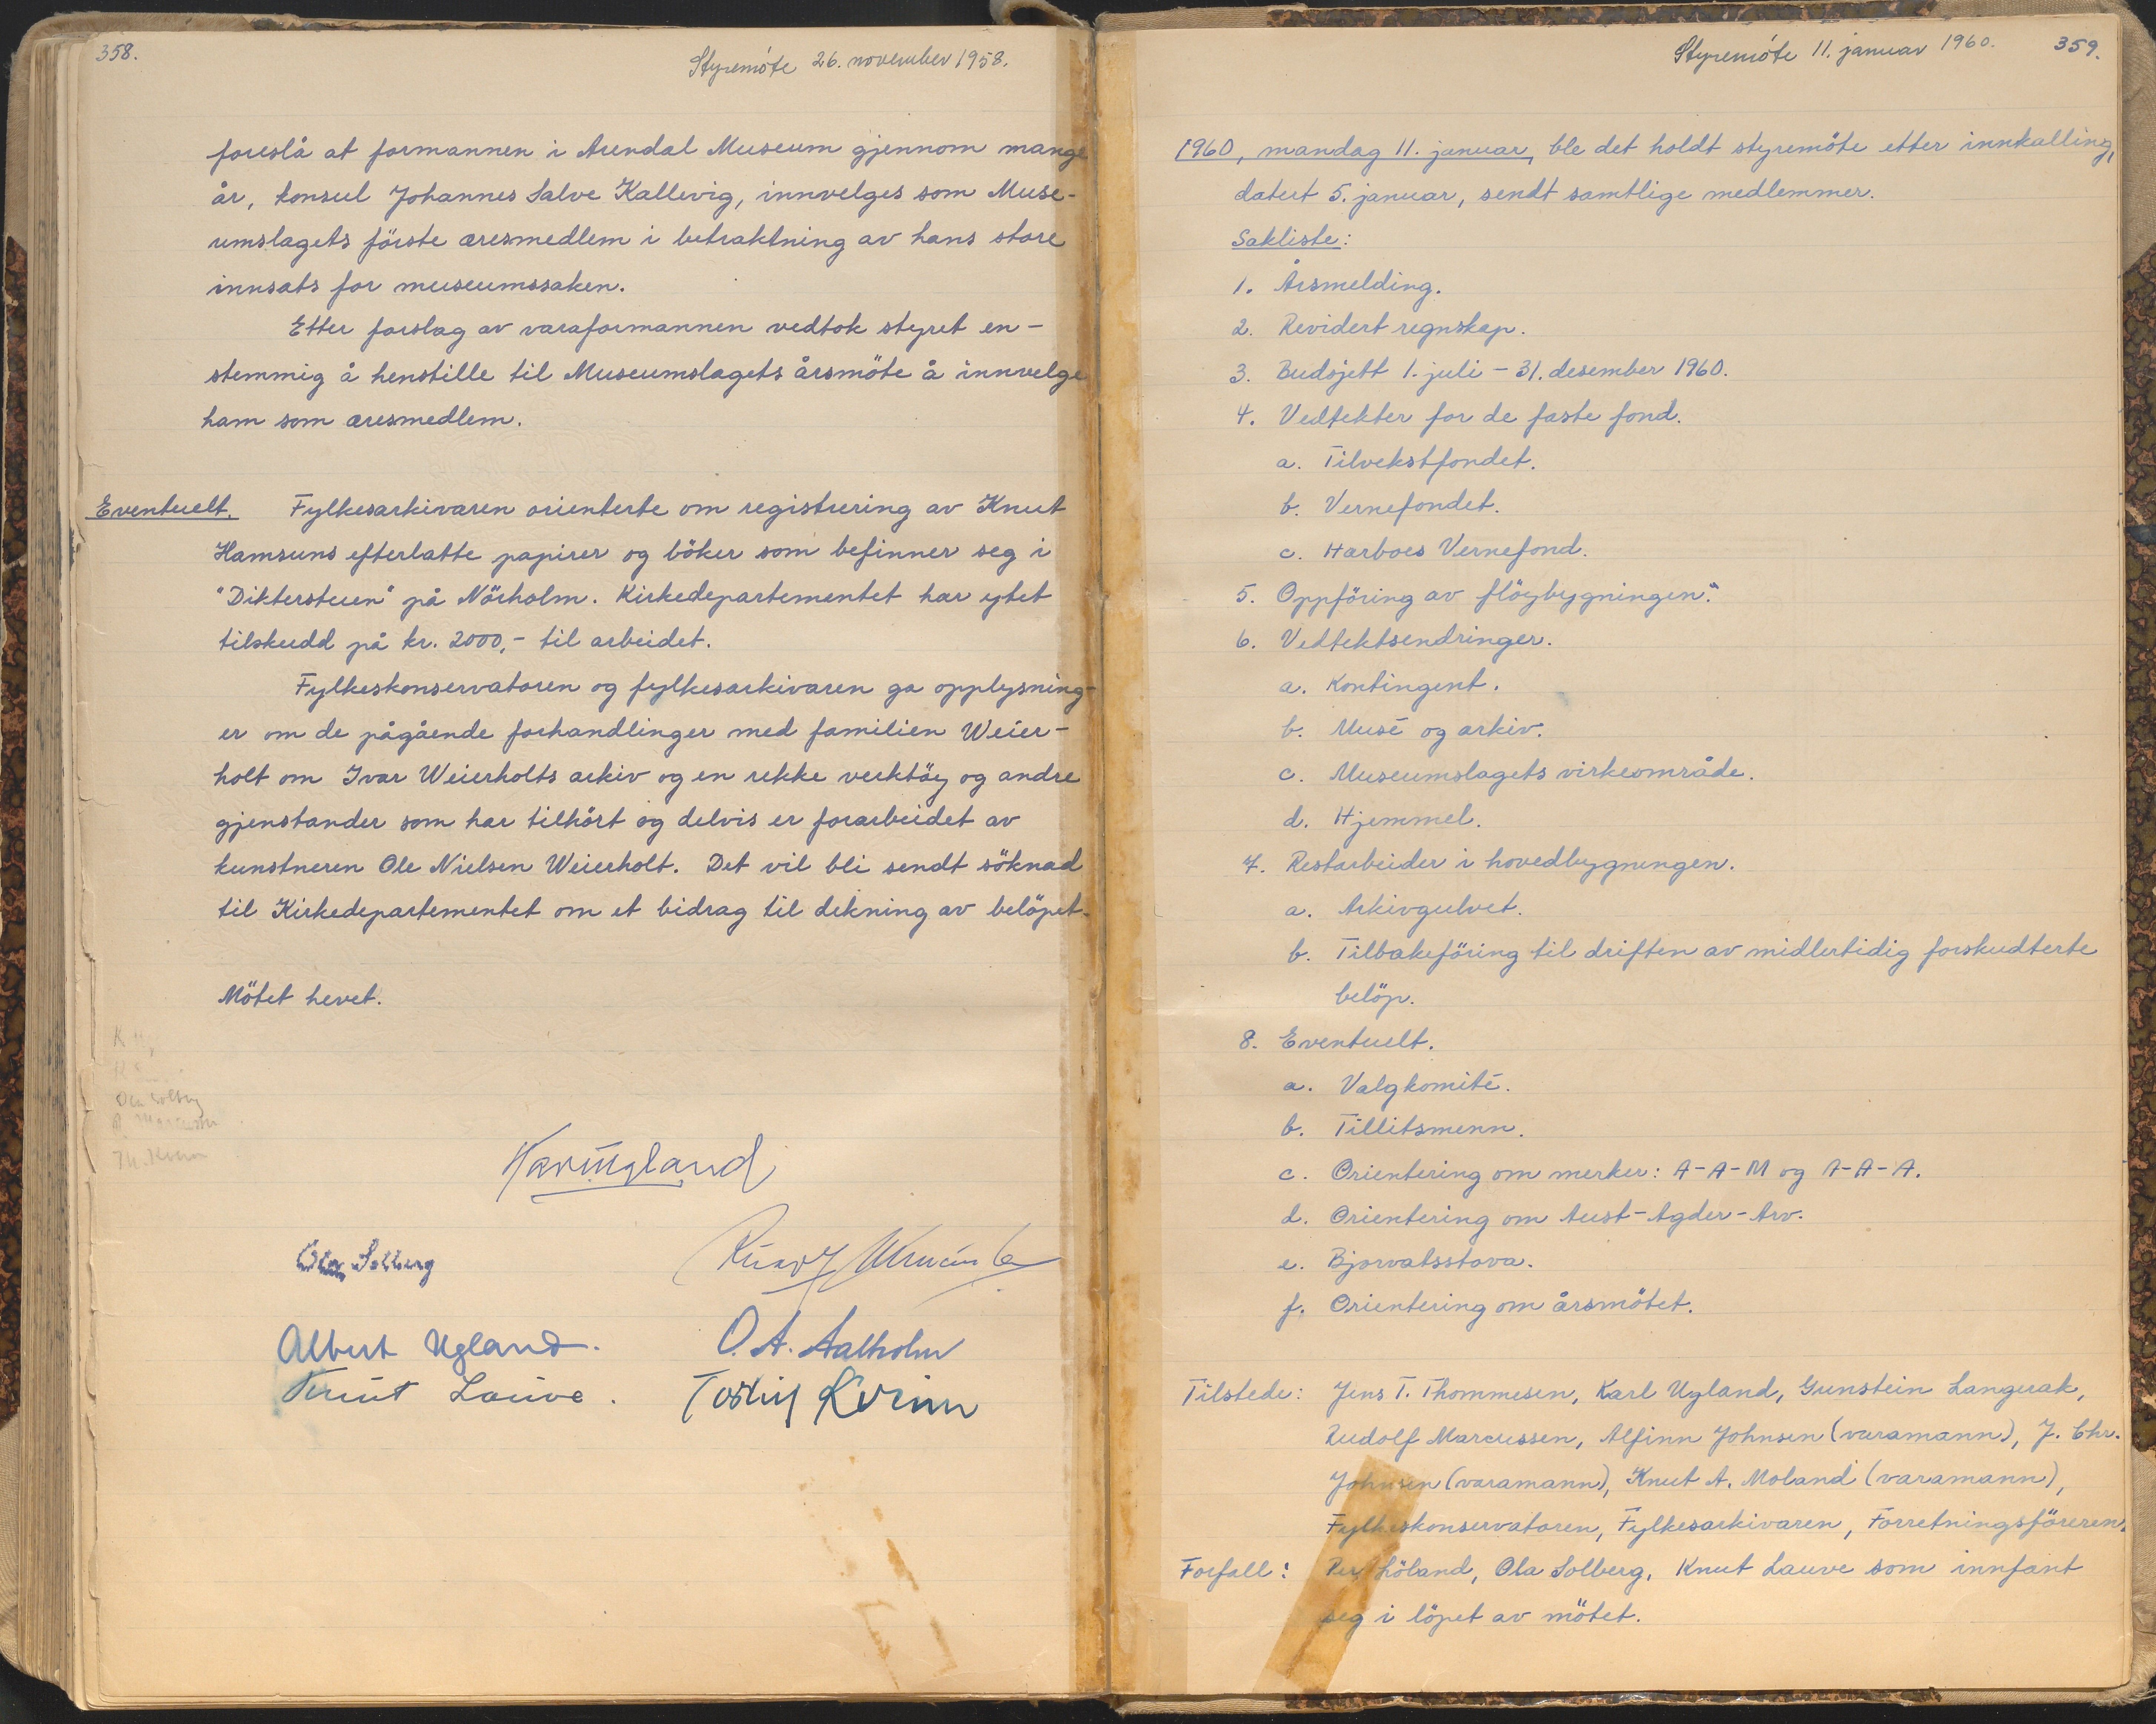 358.
Styremöte 26. november 1958.
foreslå at formannen i Arendal Museum gjennom mange
år, konsul Johannes Salve Kallevig, innvelges som Muse-
umslagets förste æresmedlem i betraktning av hans store
innsats for museumssaken.
Etter forslag av varaformannen vedtok styret en-
stemmig å henstille til Museumslagets årsmöte å innvelge
ham som æresmedlem.
Eventuelt. Fylkesarkivaren orienterte om registrering av Knut
Hamsuns efterlatte papirer og böker som befinner seg i
"Dikterstuen" på Nörholm. Kirkedepartementet har ytet
tilskudd på kr. 2000,- til arbeidet.
Fylkeskonservatoren og fylkesarkivaren ga opplysning-
er om de pågående forhandlinger med familien Weier-
holt om Ivar Weierholts arkiv og en rekke verktöy og andre
gjenstander som har tilhört og delvis er forarbeidet av
kunstneren Ole Nielsen Weierholt. Det vil bli sendt söknad
til Kirkedepartementet om et bidrag til dekning av belöpet.
Mötet hevet.
Ola Solberg
Karl Ugland
Ola Solberg
Albert Ugland.
O. A. Aalholm
Knut Lauve.
Styremöte 11. januar 1960.
359.
1960, mandag 11. januar, ble det holdt styremöte etter innkalling,
datert 5. januar, sendt samtlige medlemmer.
Sakliste:
1. Årsmelding.
2. Revidert regnskap.
3. Budsjett 1. juli - 31. desember 1960.
4. Vedtekter for de faste fond.
a. Tilvekstfondet.
b. Vernefondet.
c. Harboes Vernefond.
5. Oppföring av flöybygningen".
6. Vedtektsendringer.
a. Kontingent.
b. Musé og arkiv.
c. Museumslagets virkeområde.
d. Hjemmel.
7. Restarbeider i hovedbygningen.
a. Arkivgulvet.
b. Tilbakeföring til driften av midlertidig forskudterte
belöp.
8. Eventuelt.
a. Valgkomité.
b. Tillitsmenn.
c. Orientering om merker: A-A-M og A-A-A.
d. Orientering om Aust-Agder-Arv.
e. Bjorvatsstova.
f. Orientering om årsmötet.
Tilstede: Jens T. Thommesen, Karl Ugland, Gunstein Langerak,
Rudolf Marcussen, Alfinn Johnsen (varamann), J. Chr.
Johnsen (varamann), Knut A. Moland (varamann),
Fylkeskonservatoren, Fylkesarkivaren, Forretningsföreren.
Forfall: Per Löland, Ola Solberg, Knut Lauve som innfant
seg i löpet av mötet.